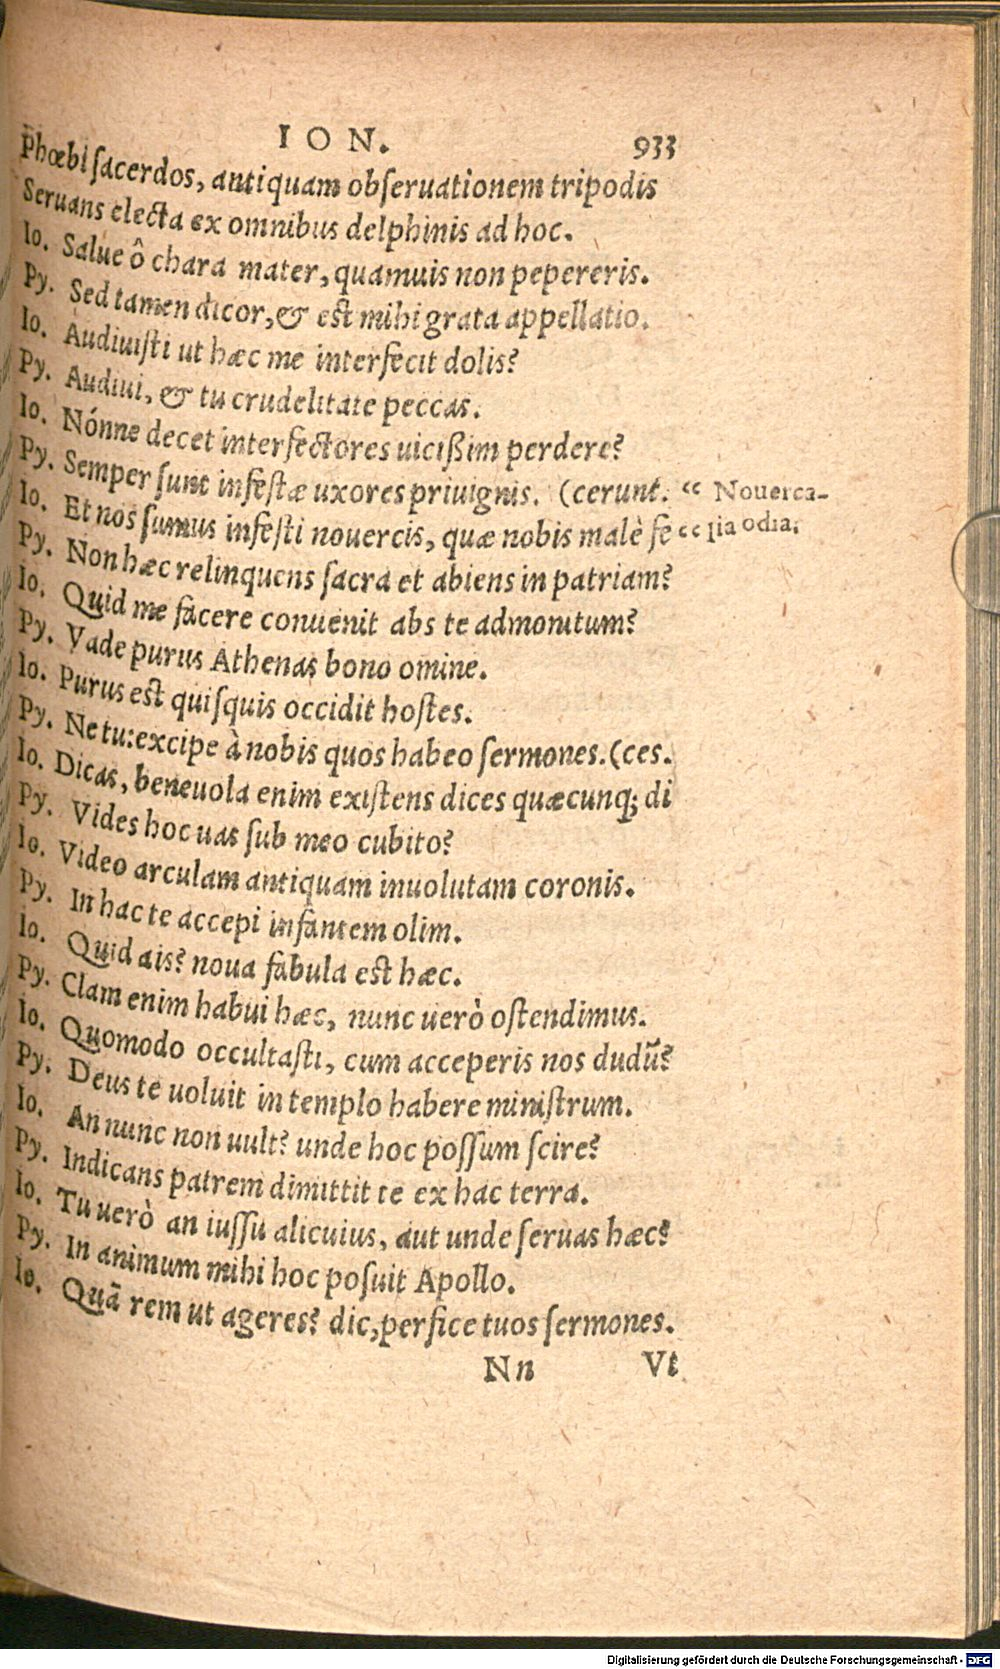 ION. 933
Phœbi sacerdos, antiquam obseruationem tripodis
Seruans electa ex omnibus delphinis ad hoc.
Io. Salue ô chara mater, quamuis non pepereris.
Py. Sed tamen dicor, & est mihi grata appellatio.
Io. Audiuisti ut hæc me interfecit dolis?
Py. Audiui, & tu crudelitate peccas.
Io. Nónne decet interfectores uicißim perdere?
Py. Semper sunt infestæ uxores priuignis. (cerunt. “ Nouerca-
Io. Et nos sumus infesti nouercis, quæ nobis malè fe “ lia odia.
Py. Non hæc relinquens sacra et abiens in patriam?
Io. Quid me facere conuenit abs te admonitum?
Py. Vade purus Athenas bono omine.
Io. Purus est quisquis occidit hostes.
Py. Ne tu: excipe à nobis quos habeo sermones. (ces.
Io. Dicas, beneuola enim existens dices quæcunq; di
Py. Vides hoc uas sub meo cubito?
Io. Video arculam antiquam inuolutam coronis.
Py. In hac te accepi infantem olim.
Io. Quid ais? noua fabula est hæc.
Py. Clam enim habui hæc, nunc uerò ostendimus.
Io. Quomodo occultasti, cum acceperis nos dudū?
Py. Deus te uoluit in templo habere ministrum.
Io. An nunc non uult? unde hoc possum scire?
Py. Indicans patrem dimittit te ex hac terra.
Io. Tu uerò an iussu alicuius, aut unde seruas hæc?
Py. In animum mihi hoc posuit Apollo.
Io. Quā rem ut ageres? dic, perfice tuos sermones.
Nn Vt
Digitalisierung gefördert durch die Deutsche Forschungsgemeinschaft - DFG